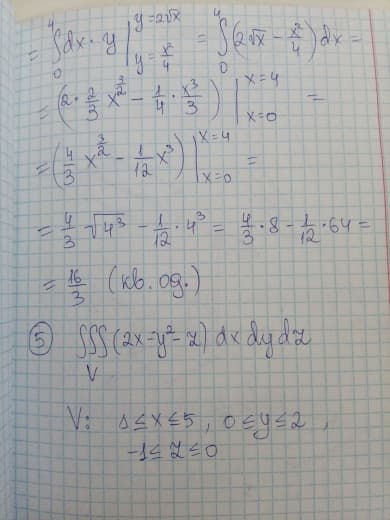 = ∫₀⁴ dx · y |_{y=x²/4}^{y=2√x} = ∫₀⁴ (2√x - x²/4) dx =
= (2 · 2/3 x^{3/2} - 1/4 · x³/3) |_{x=0}^{x=4} =
= (4/3 x^{3/2} - 1/12 x³) |_{x=0}^{x=4} =
= 4/3 √4³ - 1/12 · 4³ = 4/3 · 8 - 1/12 · 64 =
= 16/3 (кв. од.)
5 ∭_V (2x-y²-z) dx dy dz
V: 1≤x≤5, 0≤y≤2,
-1≤z≤0